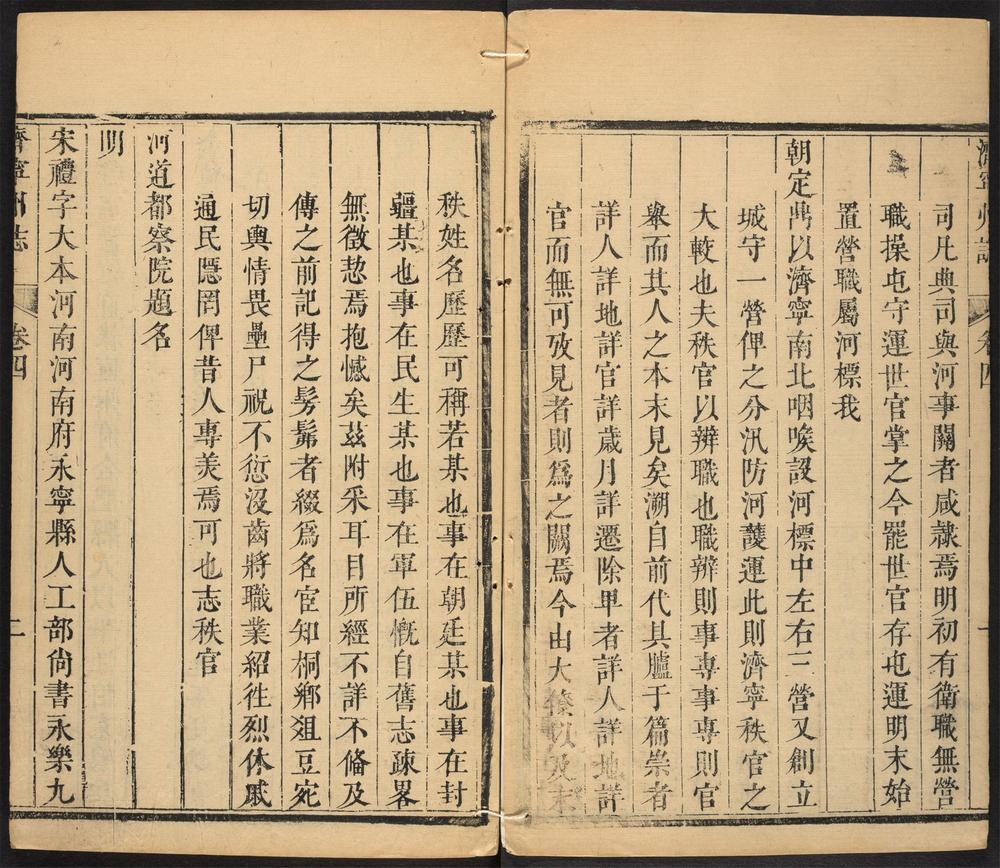 濟寧州志 卷四 一
司凡典司與河事關者咸隷焉明初有衛職無營
職操屯守運世官掌之今罷世官存屯運明末始
置營職屬河標我
朝定鼎以濟寧南北咽喉設河標中左右三營又創立
城守一營俾之分汛防河護運此則濟寧秩官之
大較也夫秩官以辨職也職辨則事專事專則官
舉而其人之本末見矣溯自前代具臚于篇崇者
詳人詳地詳官詳歲月詳遷除卑者詳人詳地詳
官而無可攷見者則爲之闕焉今由大僚以及末
秩姓名歷歷可稱若某也事在朝廷某也事在封
疆某也事在民生某也事在軍伍慨自舊志疎畧
無徵愸焉抱憾矣茲附采耳目所經不詳不俻及
傳之前記得之髣髴者綴爲名宦知桐鄉爼豆宛
切輿情畏壘尸祝不愆沒齒將職業紹徃烈休戚
通民隱罔俾昔人專羙焉可也志秩官
河道都察院題名
明
宋禮字大本河南河南府永寧縣人工部尙書永樂九
濟寧州志 卷四 二